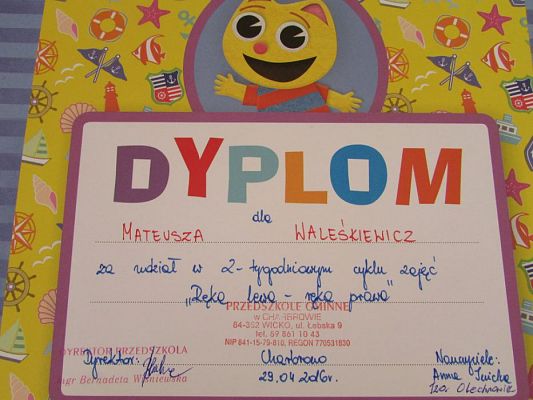 DYPLOM
dla
MATEUSZA WALEŚKIEWICZ
za udział w 2-tygodniowym cyklu zajęć
„Ręka lewa - ręka prawa"
PRZEDSZKOLE GMINNE
w CHARBROWIE
84-352 WICKO, ul. Łebska 9
tel. 59 861 10 43
NIP 841-15-79-810, REGON 770531830
DYREKTOR PRZEDSZKOLA
Dyrektor:
mgr Bernadeta Wiśniewska
Charbrowo
29.04.2016r.
Nauczyciele:
Anna